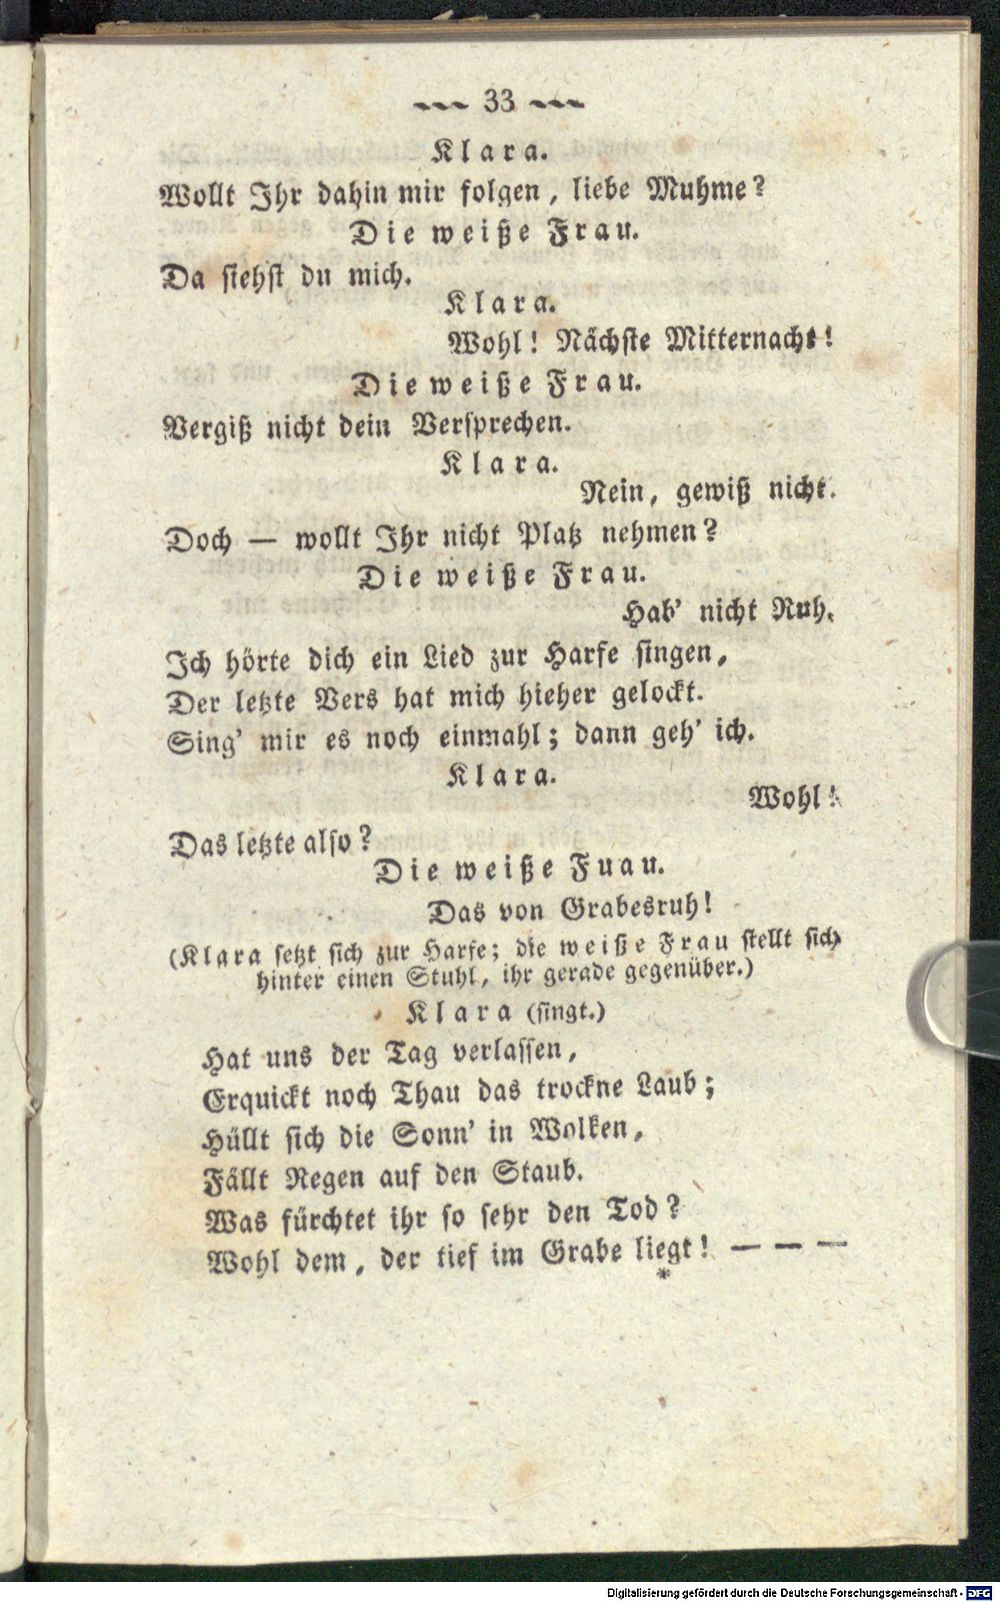 33
Klara.
Wollt Ihr dahin mir folgen, liebe Muhme?
Die weiße Frau.
Da siehst du mich.
Klara.
Wohl! Nächste Mitternacht!
Die weiße Frau.
Vergiß nicht dein Versprechen.
Klara.
Nein, gewiß nicht.
Doch — wollt Ihr nicht Platz nehmen?
Die weiße Frau.
Hab' nicht Ruh.
Ich hörte dich ein Lied zur Harfe singen,
Der letzte Vers hat mich hieher gelockt.
Sing' mir es noch einmahl; dann geh' ich.
Klara.
Wohl!
Das letzte also?
Die weiße Fuau.
Das von Grabesruh!
(Klara setzt sich zur Harfe; die weiße Frau stellt sich
hinter einen Stuhl, ihr gerade gegenüber.)
Klara (singt.)
Hat uns der Tag verlassen,
Erquickt noch Thau das trockne Laub;
Hüllt sich die Sonn' in Wolken,
Fällt Regen auf den Staub.
Was fürchtet ihr so sehr den Tod?
Wohl dem, der tief im Grabe liegt! — — —
*
Digitalisierung gefördert durch die Deutsche Forschungsgemeinschaft - DFG